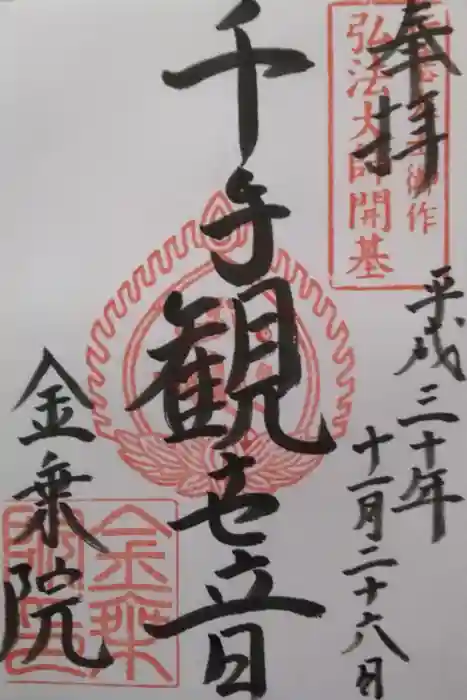 奉拝
弘法大師開基
御作
平成三十年
十一月二十六日
千手観世音
金乗院
金乗